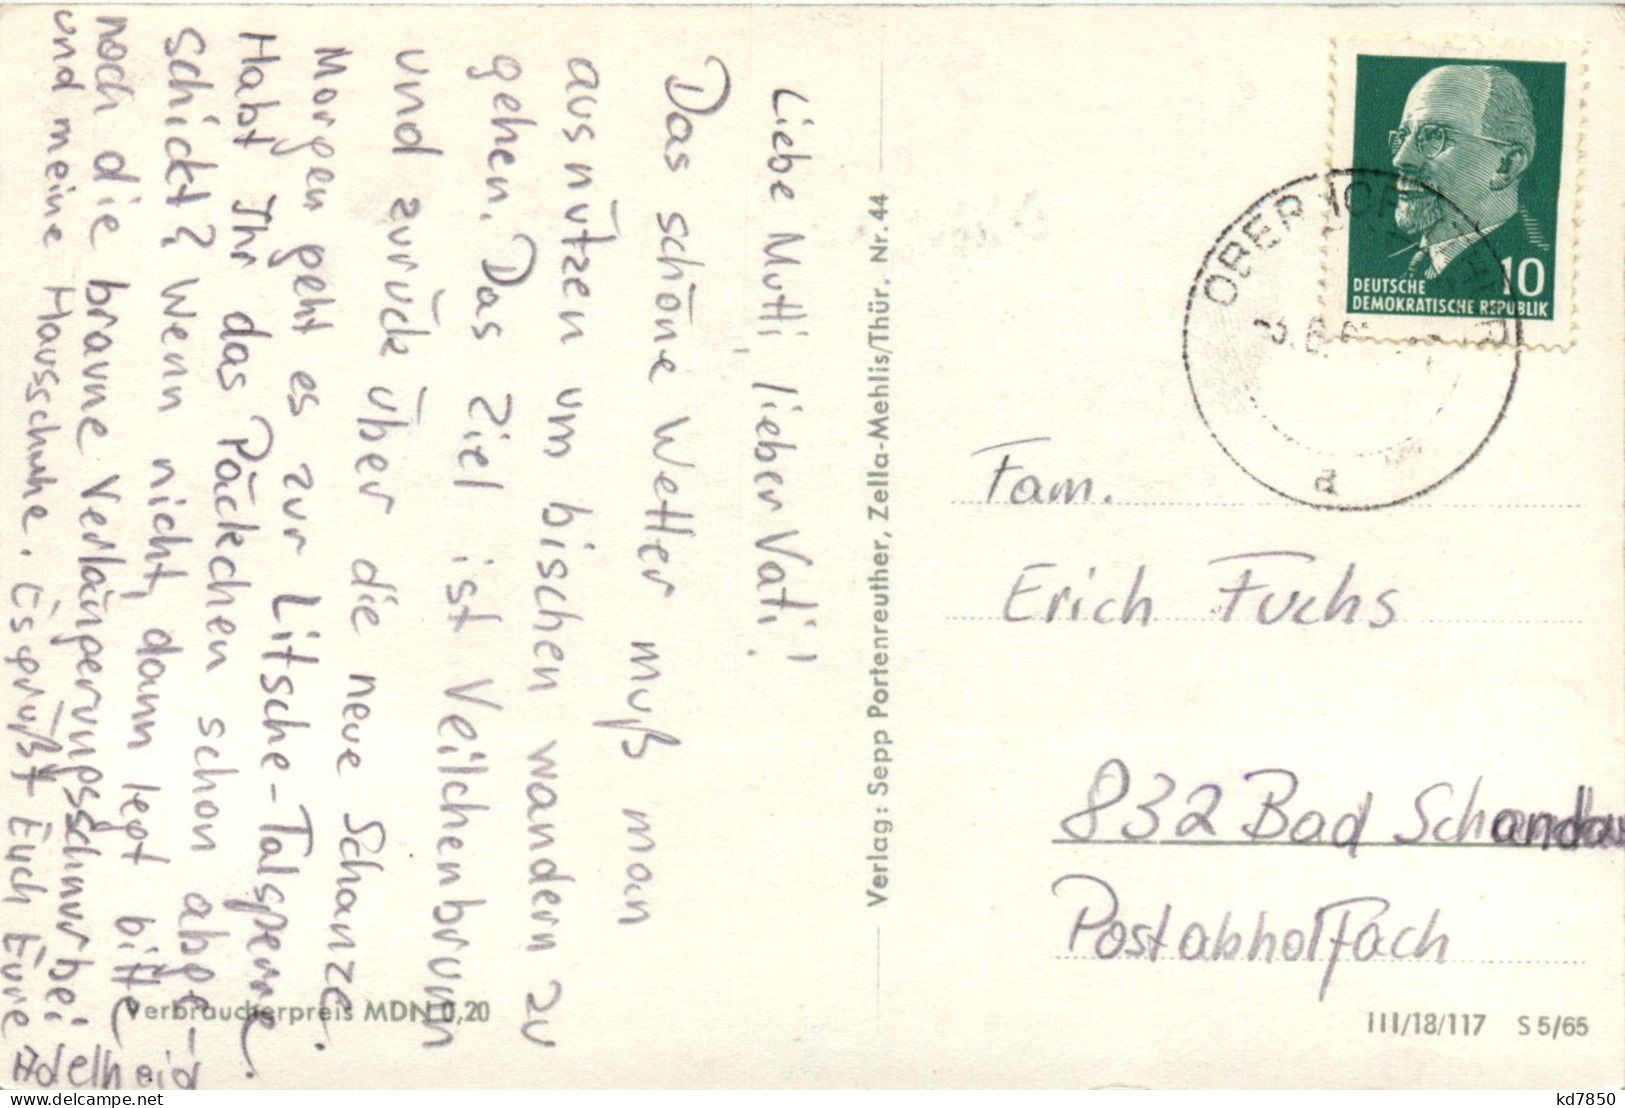 Liebe Mutti, lieber Vati!
Das schöne Wetter muß man
ausnützen um bischen wandern zu
gehen. Das Ziel ist Veilchenbrunn
und zurück über die neue Schanze.
Morgen geht es zur Litsche-Talsperre.
Habt Ihr das Päckchen schon abge-
schickt? Wenn nicht, dann legt bitte
noch die braune Verlängerungsschnur bei
und meine Hausschuhe. Es grüßt Euch Eure
Adelheid
Verbraucherpreis MDN 0,20
Verlag: Sepp Portenreuther, Zella-Mehlis/Thür. Nr. 44
10
DEUTSCHE
DEMOKRATISCHE REPUBLIK
OBERHOF
a
Fam.
Erich Fuchs
832 Bad Schandau
Postabholfach
III/18/117 S 5/65
delcampe.net
kd7850